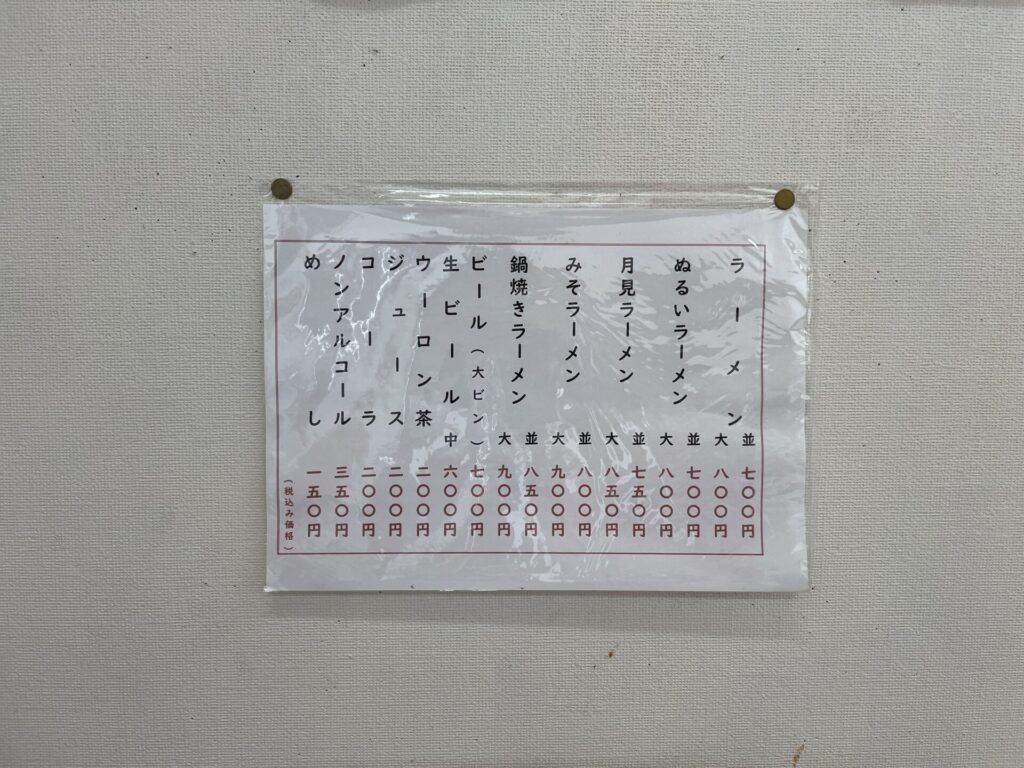 ラーメン 並 七〇〇円
大 八〇〇円
ぬるいラーメン 並 七〇〇円
大 八〇〇円
月見ラーメン 並 七五〇円
大 八五〇円
みそラーメン 並 八〇〇円
大 九〇〇円
鍋焼きラーメン 並 八五〇円
大 九〇〇円
ビール(大ビン) 七〇〇円
生ビール中 六〇〇円
ウーロン茶 二〇〇円
ジュース 二〇〇円
コーラ 二〇〇円
ノンアルコール 三五〇円
めし 一五〇円
(税込み価格)